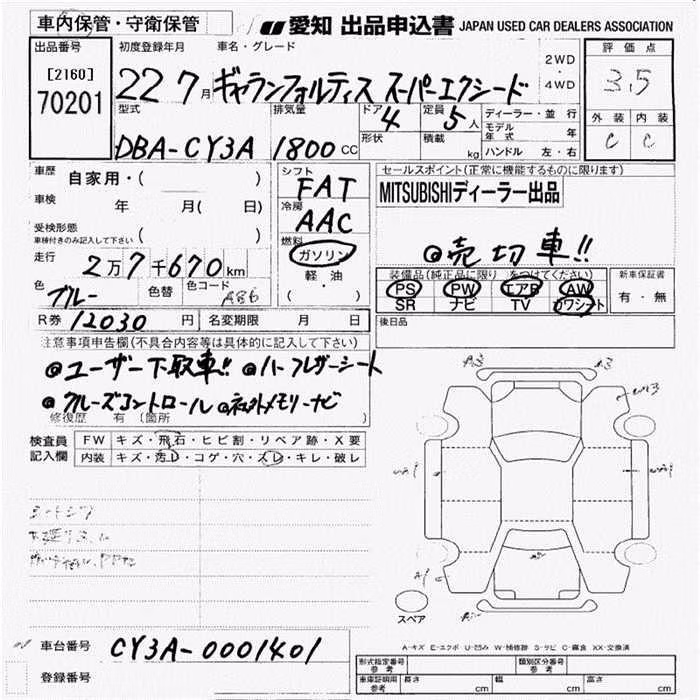 車内保管・守衛保管 愛知 出品申込書 JAPAN USED CAR DEALERS ASSOCIATION
出品番号 初度登録年月 車名・グレード 評価点
[2160] 22 7月 ギャランフォルティス スーパーエクシード 2WD・4WD 3.5
70201
型式 排気量 ドア 4 定員 5人 ディーラー・並行 外装 内装
DBA-CY3A 1800cc 形状 積載 kg モデル年式 年 C C
ハンドル 左・右
車歴 自家用・( )
車検 年 月( 日)
受検形態 ( )
車検付きのみ記入して下さい
走行 2万7千670km
色 ブルー 色替 色コード A86
R券 12030円 名変期限 月 日
シフト FAT
冷房 AAC
燃料 ガソリン
軽・油
( ・ )
セールスポイント(正常に機能するものに限ります)
MITSUBISHIディーラー出品
◎売切車!!
装備品(純正品に限り をつけてください) 新車保証書
PS PW エアB AW 有・無
SR ナビ TV カワシート
後日品
注意事項申告欄(不具合内容等は具体的に記入して下さい)
◎ユーザー下取車!! ◎ハーフレザーシート
◎クルーズコントロール ◎社外メモリーナビ
修復歴 有(箇所
検査員 FW キズ・飛石・ヒビ割・リペア跡・X要
記入欄 内装 キズ・汚レ・コゲ・穴・スレ・キレ・破レ
スペア
A-キズ E-エクボ U-凹み W-補修跡 S-サビ C-腐食 XX-交換済
車台番号 CY3A-0001401
登録番号
形式指定番号 参考 類別区分番号 参考
車庫証明用 参考 長さ cm 幅 cm 高さ cm